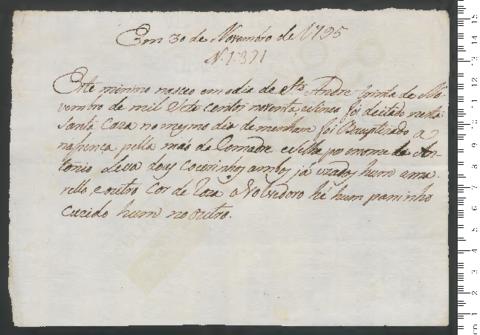 Em 30 de Novembro de 1795
N. 1391
Este minino nasceo em odia de Sto. Andre trinta de No
vembro de mil Sete centos noventa, e sinco foi deitado nesta
Santa Caza no mesmo dia de menham foi Bauptizado a
nascença pella mão da Comadre e se lhe por o nome de An
tonio Leva dous coeirinhos ambos já uzados hum ama
rello, e outro Cor de Roza o Volvedoro hé hum paninho
cuzido hum no outro.